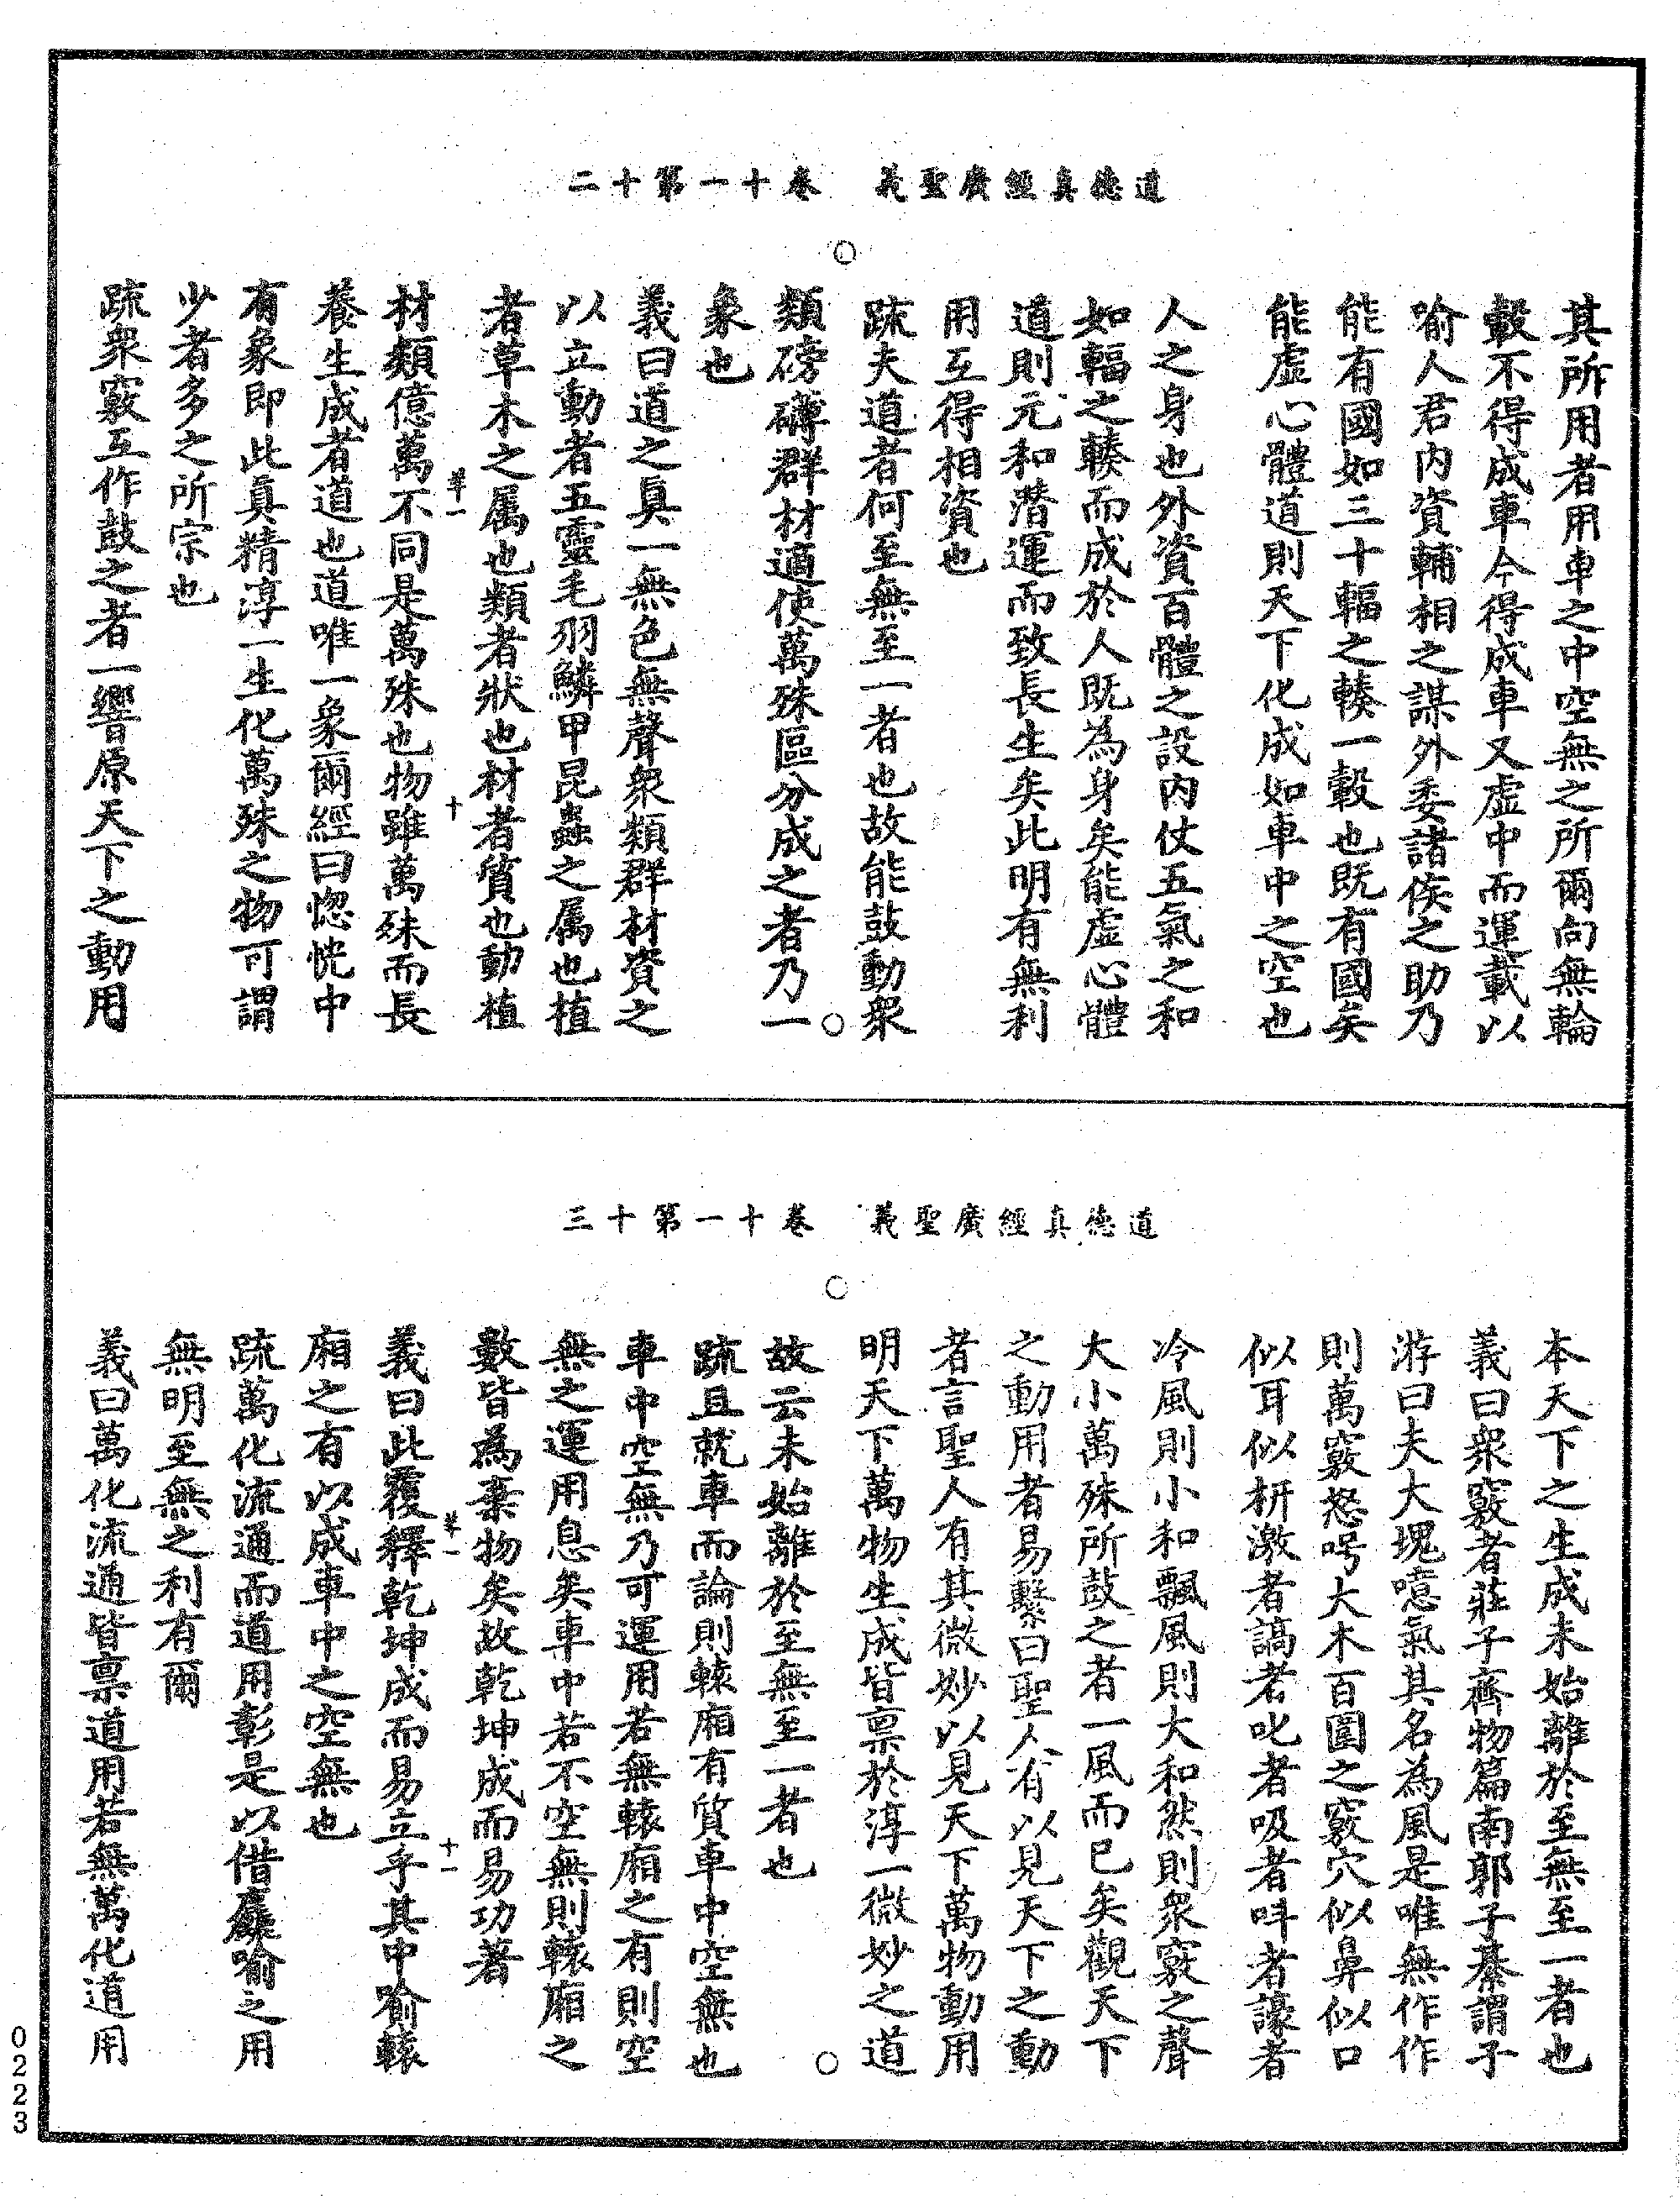 道德真經廣聖義　卷十一第十二
其所用者用車之中空無之所爾向無輪
轂不得成車今得成車又虛中而運載以
喻人君内資輔相之謀外委諸侯之助乃
能有國如三十輻之輳一轂也既有國矣
能虛心體道則天下化成如車中之空也
人之身也外資百體之設内仗五氣之和
如輻之輳而成於人既為身矣能虛心體
道則元和潜運而致長生矣此明有無利
用互得相資也
疏夫道者何至無至一者也故能鼓動衆
類磅礴群材適使萬殊區分成之者乃一
象也
義曰道之真一無色無聲衆類群材資之
以立動者五靈毛羽鱗甲昆蟲之属也植
者草木之属也類者狀也材者質也動植
材類億萬不同是萬殊也物雖萬殊而長
養生成者道也道唯一象爾經曰惚恍中
有象即此真精淳一生化萬殊之物可謂
少者多之所宗也
疏衆竅互作鼓之者一響原天下之動用
道德真經廣聖義　卷十一第十三
本天下之生成未始離於至無至一者也
義曰衆竅者莊子齊物篇南郭子綦謂子
游曰夫大塊噫氣其名為風是唯無作作
則萬竅怒呺大木百圍之竅穴似鼻似口
似耳似枅激者謞者叱者吸者叫者譹者
冷風則小和飄風則大和然則衆竅之聲
大小萬殊所鼓之者一風而已矣觀天下
之動用者易繫曰聖人有以見天下之動
者言聖人有其微妙以見天下萬物動用
明天下萬物生成皆禀於淳一微妙之道
故云未始離於至無至一者也
疏且就車而論則轅廂有質車中空無也
車中空無乃可運用若無轅廂之有則空
無之運用息矣車中若不空無則轅廂之
數皆為棄物矣故乾坤成而易功著
義曰此覆釋乾坤成而易立乎其中喻轅
廂之有以成車中之空無也
疏萬化流通而道用彰是以借麤喻之用
無明至無之利有爾
義曰萬化流通皆禀道用若無萬化道用
0223